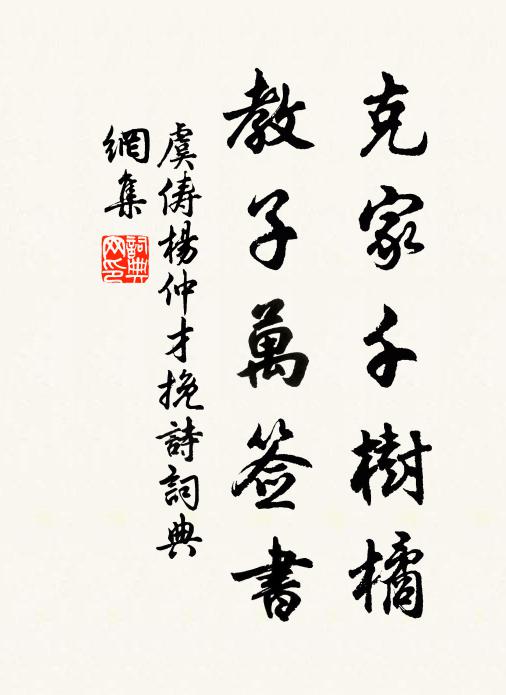 克家千樹橘
教子萬签書
虞俦楊仲才挽詩詞典
網集
詞典
网印